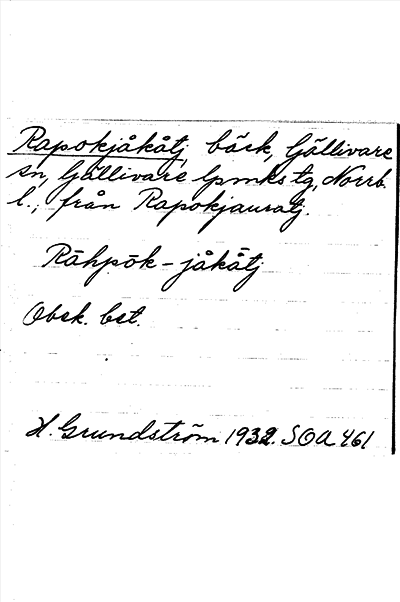 Rapokjåkåtj, bäck, Gällivare
sn, Gällivare lpmks tg, Norrb.
l.; från Rapokjauratj.
Rāhpōk-jåkåtj
Obek. bet.
H. Grundström 1932. SOA 461